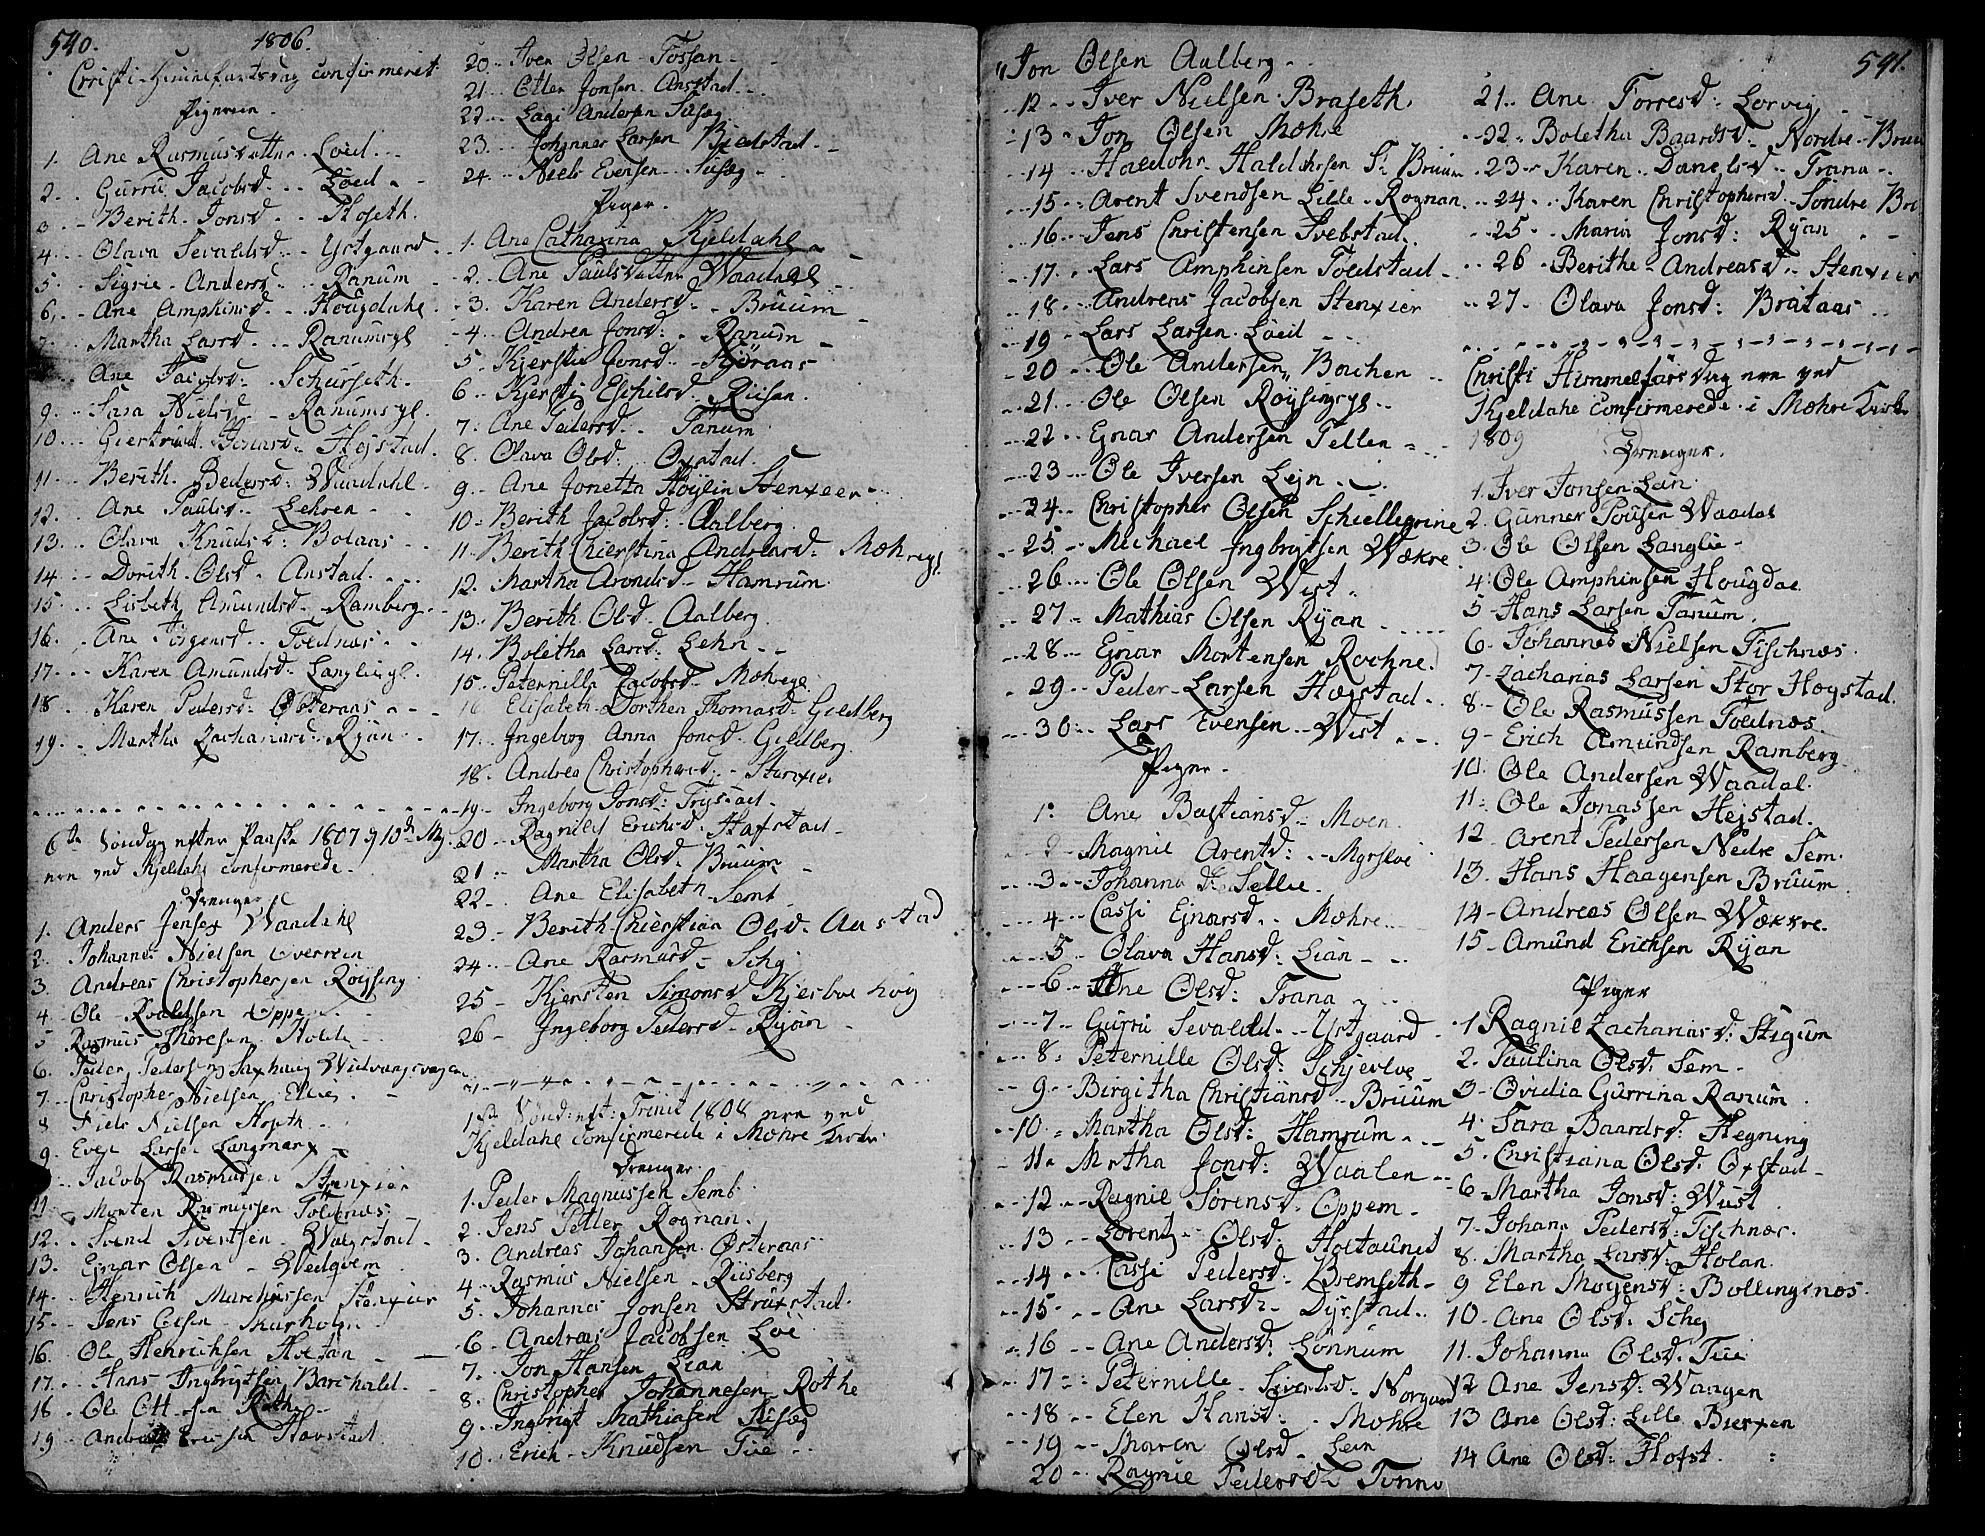 540.
1806.
Christi Himmelfartsdag confirmeret
Pigerne
1. Ane Rasmusdatter Løed
2. Gurru Jacobsd. Løed
3. Berith Jonsd. Hoseth.
4. Olava Sevaldsd. Ystgaard
5. Sigrie Andersd. Ranum
6. Ane Amphinsd. Hougdahl
7. Martha Larsd. Ranumsgl
Ane Jacobsd. Schurseth.
9. Sara Nielsd. Ranumsgl.
10. Giertrud Jonasd. Hejstad.
11. Berith Pedersd. Waadahl
12. Ane Paulsd. Lehren
13. Olava Knudsd: Bolaas
14. Dorith Olsd. Anstad.
15. Lisbeth Amundsd. Ramberg
16. Ane Jørgensd. Foldnæs
17. Karen Amundsd. Langliegl.
18. Karen Pedersd. Østeraas
19. Martha Zachariasd. Ryan
6te Søndag efter Paaske 1807 d 10de Maj
nen ved Kjeldahl confirmerede.
Drenger
1. Anders Jensen Waadahl
2. Johannes Nielsen Overrein
3. Andreas Christophersen Röysing
4. Ole Roaldsen Oppem
5. Rasmus Thoresen Holde
6. Peder Pedersen Saxhaug
7. Christopher Nielsen
8. Niels Nielsen Hoseth
9. Even Larsen Langmarx
Jacob Rasmussen Stenxier
11. Morten Rasmussen Foldnæs
12. Svend Sivertsen
13. Ejnar Olsen Wedqvem
14. Henrich Marchussen Stenxier
15. Jens Olsen
16. Ole Henrichsen Hoxtan
17. Hans Ingbrigtsen Barchald
18. Ole Ottersen Røthe
19. Andreas Havstad
20. Iver Olsen Fossan
21. Otter Jonsen Anstad
22. Lage Andersen Susæg
23. Johannes Larsen Bjelstad
24. Niels Evensen Susæg
Piger.
1. Ane Catharina Kjeldahl
2. Ane Paulsdatter Waadahl
3. Karen Andersd. Bruum
4. Andrea Jonsd. Ranum
5. Kjerstie Jonsd.
6. Kjersti Eschilsd. Riisan.
7. Ane Pedersd. Tanum
8. Olava Olsd. Oxstad
9. Ane Jonetta Høylin Stenxier
10. Berith Jacobsd. Aalberg.
11. Berith Chierstina Andreasd: Mæhregl.
12. Martha Arondsd. Hamrum.
13. Berith Olsd. Aalberg.
14. Bolitha Larsd: Lehn
15. Peternille Jacobsd. Mæhregl
16. Elisabeth Dorthea Thomasd. Gieldberg
17. Ingeborg Anna Jonsd. Gieldberg.
18. Andrea Christophersd. Stenxier
19. Ingeborg Jonsd: Trystad
20. Ragnild Erichsd. Hafstad
21. Martha Olsd. Bruum
22. Ane Elisabeth Semb
23. Berith Chierstina Olsd. Austad
24. Ane Rasmusd. Schej
25. Kjersten Simonsd Kjesboe høig
26. Ingeborg Pedersd. Ryan
1ste Sønd: eft: Trinit 1808 nen ved
Kjeldahl confirmerede i Mæhre Kirke.
Drenger.
1. Peder Magnussen Semb
2. Jens Petter Rognan.
3. Andreas Johansen Østeraas
4. Rasmus Nielsen Riisberg
5. Johannes Jonsen Struxstad.
6. Andreas Jacobsen Löe
7. Jon Hansen Lian
8. Christopher Johannesen Röthe
9. Ingbrigt Mathiasen Susæg
10. Erich Knudsen Tüe
541.
11 Jon Olsen Aalberg
12. Iver Nielsen Braseth.
13. Jon Olsen Mæhre
14. Haldohr Haldohrsen St: Bruum
15. Arent Svendsen Lille Rognan.
16. Jens Christensen Svebstad.
17. Lars Amphinsen Foldstad
18. Andreas Jacobsen Stenxier
19. Lars Larsen Löeid
20. Ole Andersen Bachen
21. Ole Olsen Röysingegl
22. Ejnar Andersen Tellen
23. Ole Iversen Lejn
24. Christopher Olsen Schiellegrine
25. Michael Ingbrigtsen Wækre
26. Ole Olsen Wist
27. Mathias Olsen Ryan
28. Ejnar Mortensen Rochne.
29. Peder Larsen Hægstad
30. Lars Evensen Wist
Piger.
1. Ane Bastiansd. Moen
2. Magnil Arentd: Myrslvi
3. Johanna do Sellie.
4. Cassi Ejnarsd. Mæhre
5. Olava Hansd: Lian
6. Ane Olsd: Trana
7. Gurru Sevaldsd. Ystgaard
8. Peternille Olsd: Schjerlve
9. Birgitha Christiansd. Bruum
10. Martha Olsd: Hamrum
11. Mrtha Jonsd: Waalen
12. Ragnil Sörensd. Oppem
13. Lorents Olsd: Holtaunet
14. Cassi Pedersd. Bremseth
15. Ane Larsd. Dyrstad.
16. Ane Andersd. Lönnum
17. Peternille Sivertsd. Norgaard
18. Elen Hansd: Mæhre
19. Maren Olsd. Lein
20. Ragnil Pedersd. Tvnno
21. Ane Torresd: Lorvig
22. Boletha Baardsd. Nordre Bruu
23. Karen Danelsd Trana
24. Karen Christophersd. Söndre Bru
25. Maria Jonsd: Ryan
26. Berithe Andreasd. Stenxier
27. Olava Jonsd: Brataas
Christi Himmelfarsdag nen ved
Kjeldahl confirmerede i Mæhre Kirke
1809
Drenger.
1. Iver Jonsen Lan
2. Gunner Povlsen Waadal
3. Ole Olsen Langlie
4. Ole Amphinsen Hougdal
5. Hans Larsen Tanum.
6. Johannes Nielsen Fischnæs.
7. Zacharias Larsen Stor Hogstad.
8. Ole Rasmussen Foldnæs
9. Erich Amundsen Ramberg
10. Ole Andersen Waadal.
11. Ole Jonassen Hejstad.
12. Arent Pedersen Nedre Sem.
13. Hans Haagensen Bruum
14. Andreas Olsen Wækkre.
15. Amund Erichsen Ryan
Piger
1. Ragnil Zachariasd: Stigum
2. Paulina Olsd: Sem
3. Ovidia Gurrina Ranum
4. Sara Baardsd: Hegning
5. Christiana Olsd. Oxstad
6. Martha Jonsd: Wist
7. Johana Pedersd: Fischnæs.
8. Martha Larsd. Holan.
9. Elen Mogensd: Bollingsnæs.
10. Ane Olsd: Schej
11. Johanna Olsd: Tüe
12. Ane Jensd: Wangen
13. Ane Olsd: Lille Bierxen
14. Ane Olsd: Hofst.